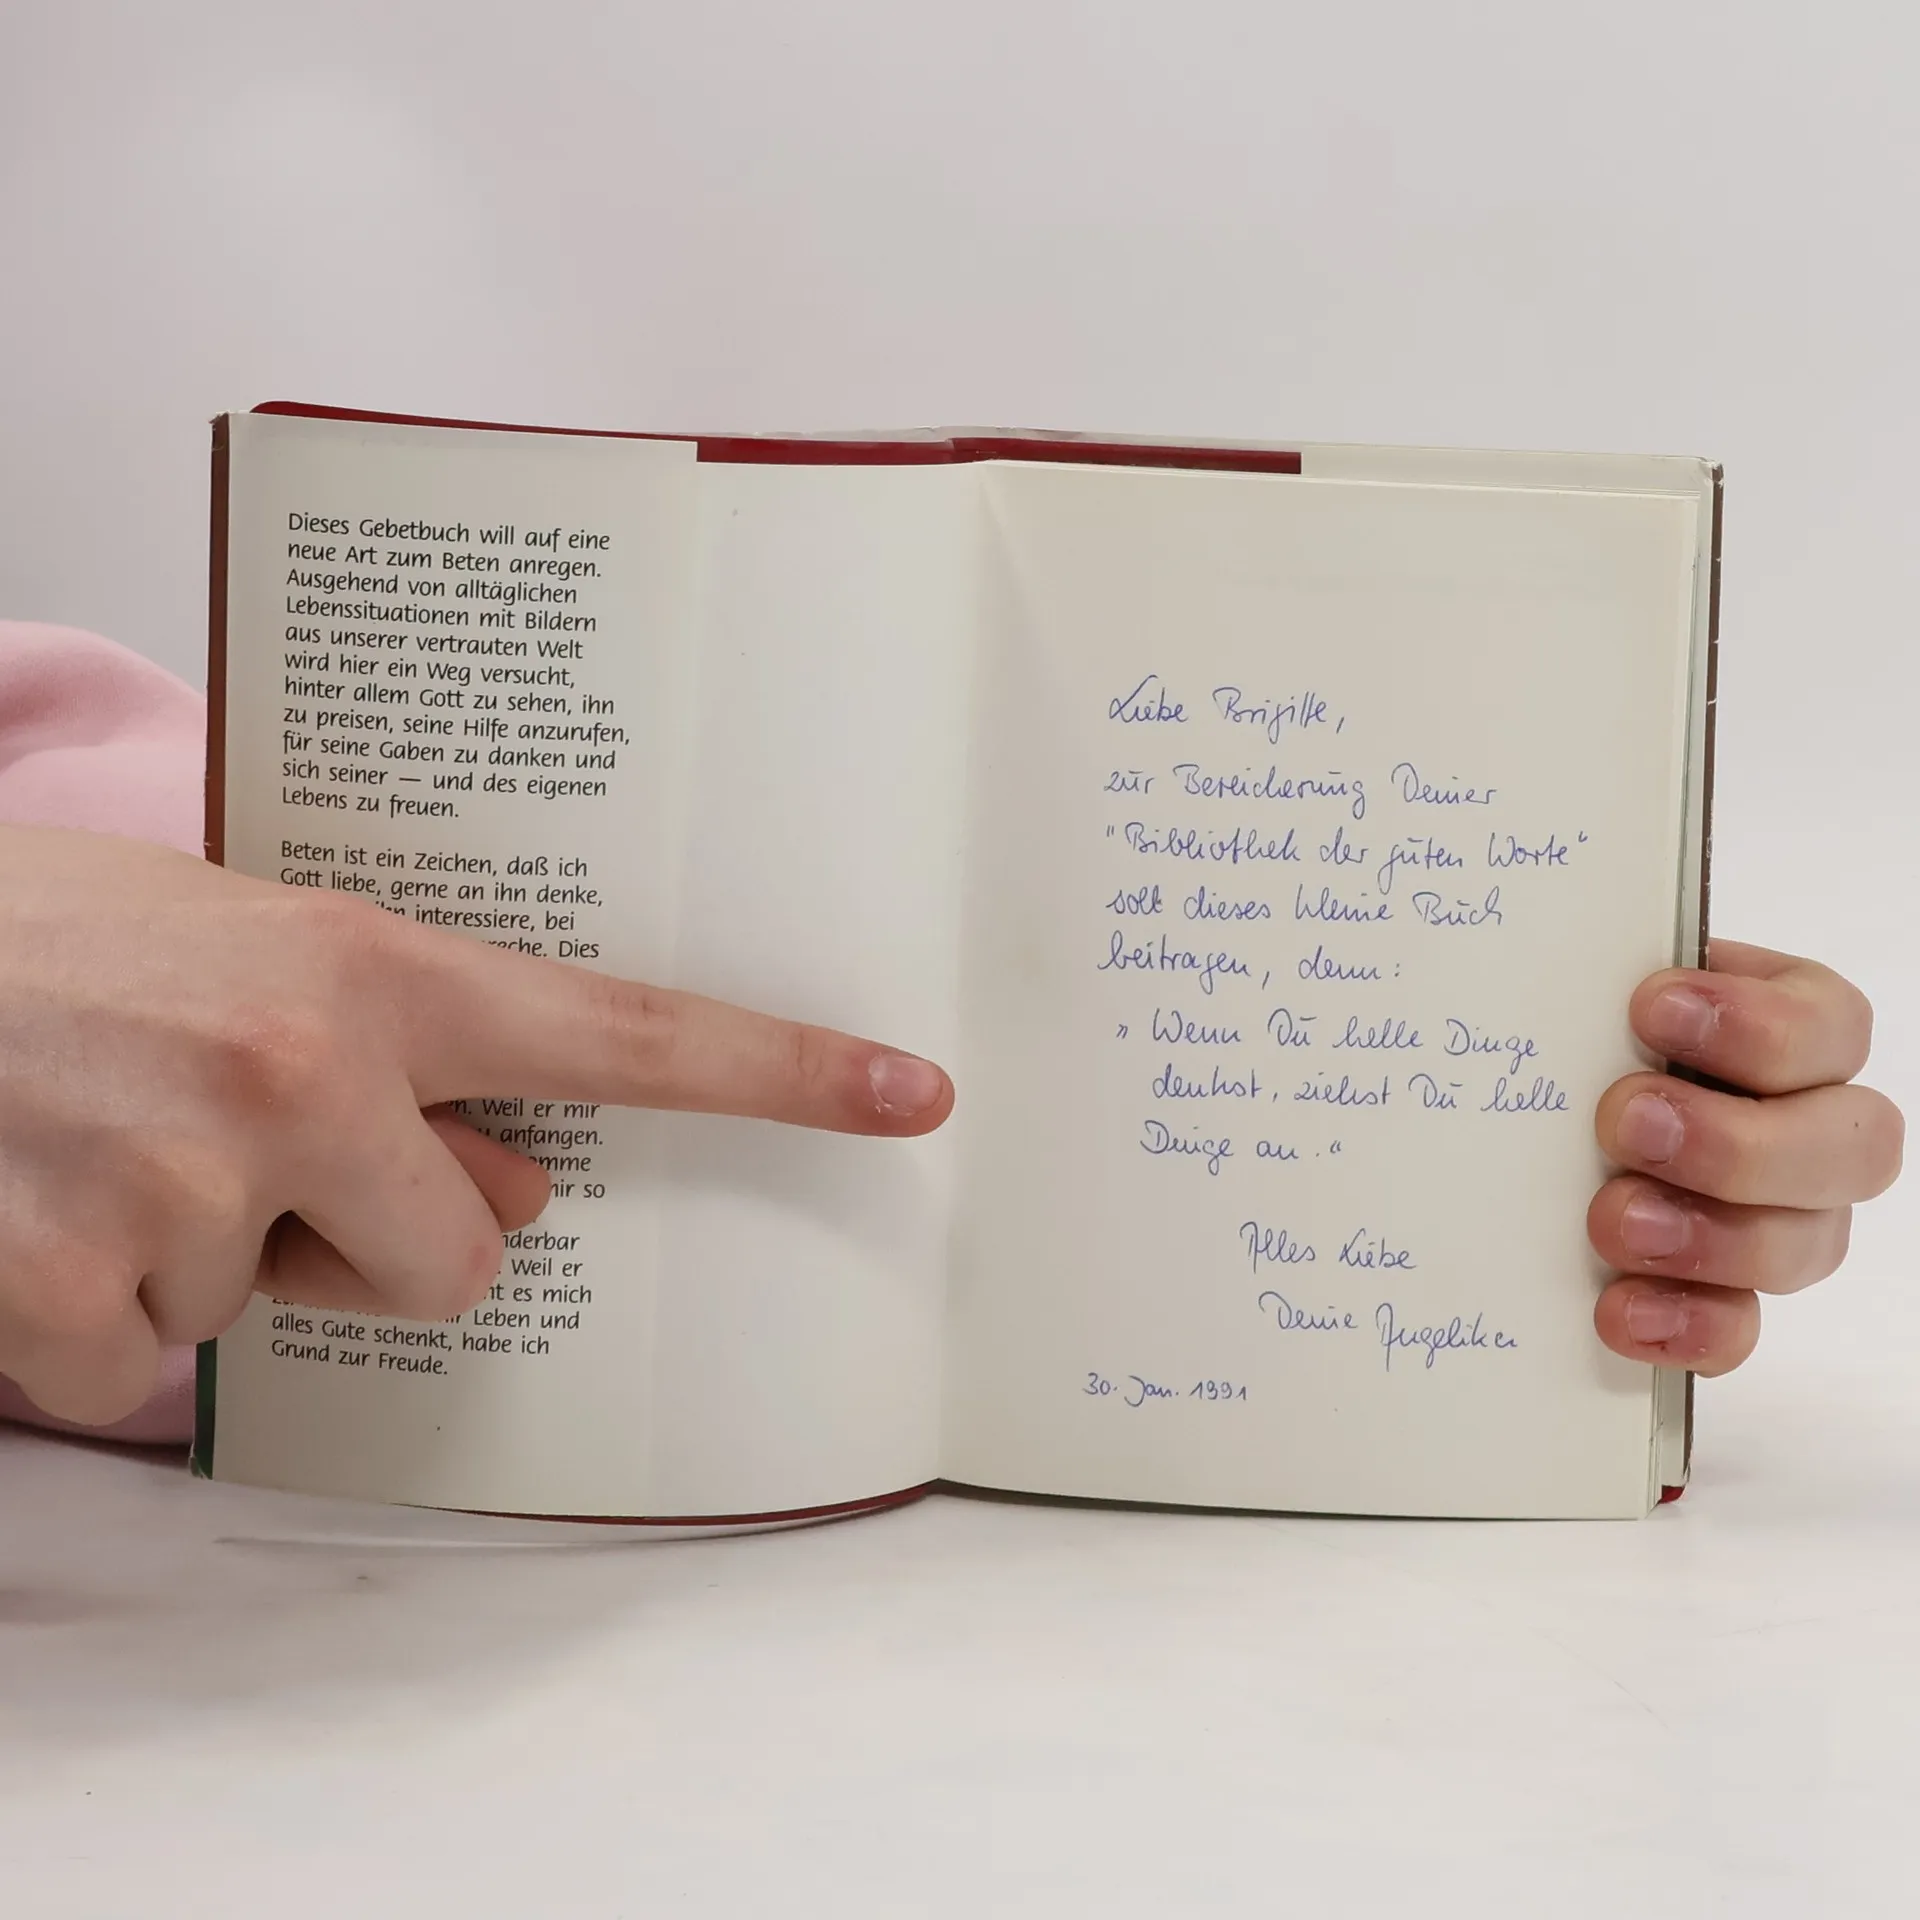 Dieses Gebetbuch will auf eine
neue Art zum Beten anregen.
Ausgehend von alltäglichen
Lebenssituationen mit Bildern
aus unserer vertrauten Welt
wird hier ein Weg versucht,
hinter allem Gott zu sehen, ihn
zu preisen, seine Hilfe anzurufen,
für seine Gaben zu danken und
sich seiner — und des eigenen
Lebens zu freuen.
Beten ist ein Zeichen, daß ich
Gott liebe, gerne an ihn denke,
interessiere, bei
Dies
Weil er mir
anfangen.
so
Weil er
es mich
Leben und
alles Gute schenkt, habe ich
Grund zur Freude.
Liebe Brigitte,
zur Bereicherung Deiner
"Bibliothek der guten Worte"
soll dieses kleine Buch
beitragen, denn:
" Wenn Du helle Dinge
denkst, ziehst Du helle
Dinge an."
Alles Liebe
Deine Angelika
30. Jan. 1991